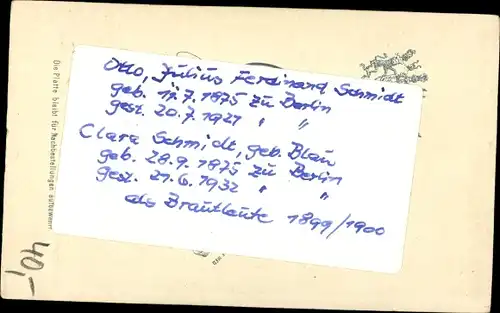 Otto, Julius Ferdinand Schmidt
geb. 17.7.1875 zu Berlin
gest. 20.7.1921 " "
Clara Schmidt, geb. Blau
geb. 28.9.1875 zu Berlin
gest. 21.6.1932 " "
als Brautleute 1899/1900
Die Platte bleibt für Nachbestellungen aufbewahrt
40,-